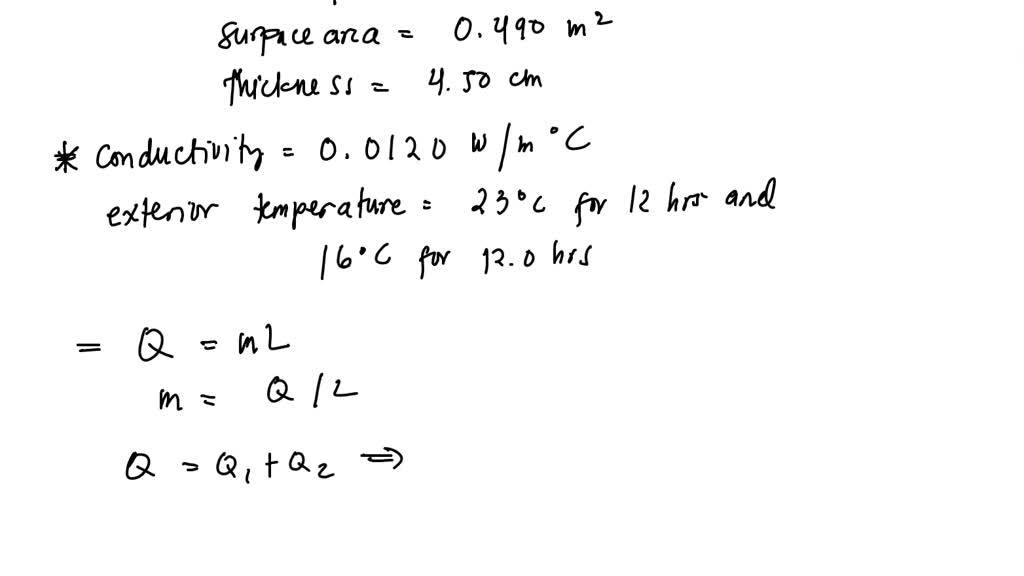 surface area = 0.490 m²
Thickness = 4.50 cm
* conductivity = 0.0120 W/m °C
exterior temperature = 23°C for 12 hrs and
16°C for 12.0 hrs
= Q = mL
m = Q / L
Q = Q₁ + Q₂ ⇒